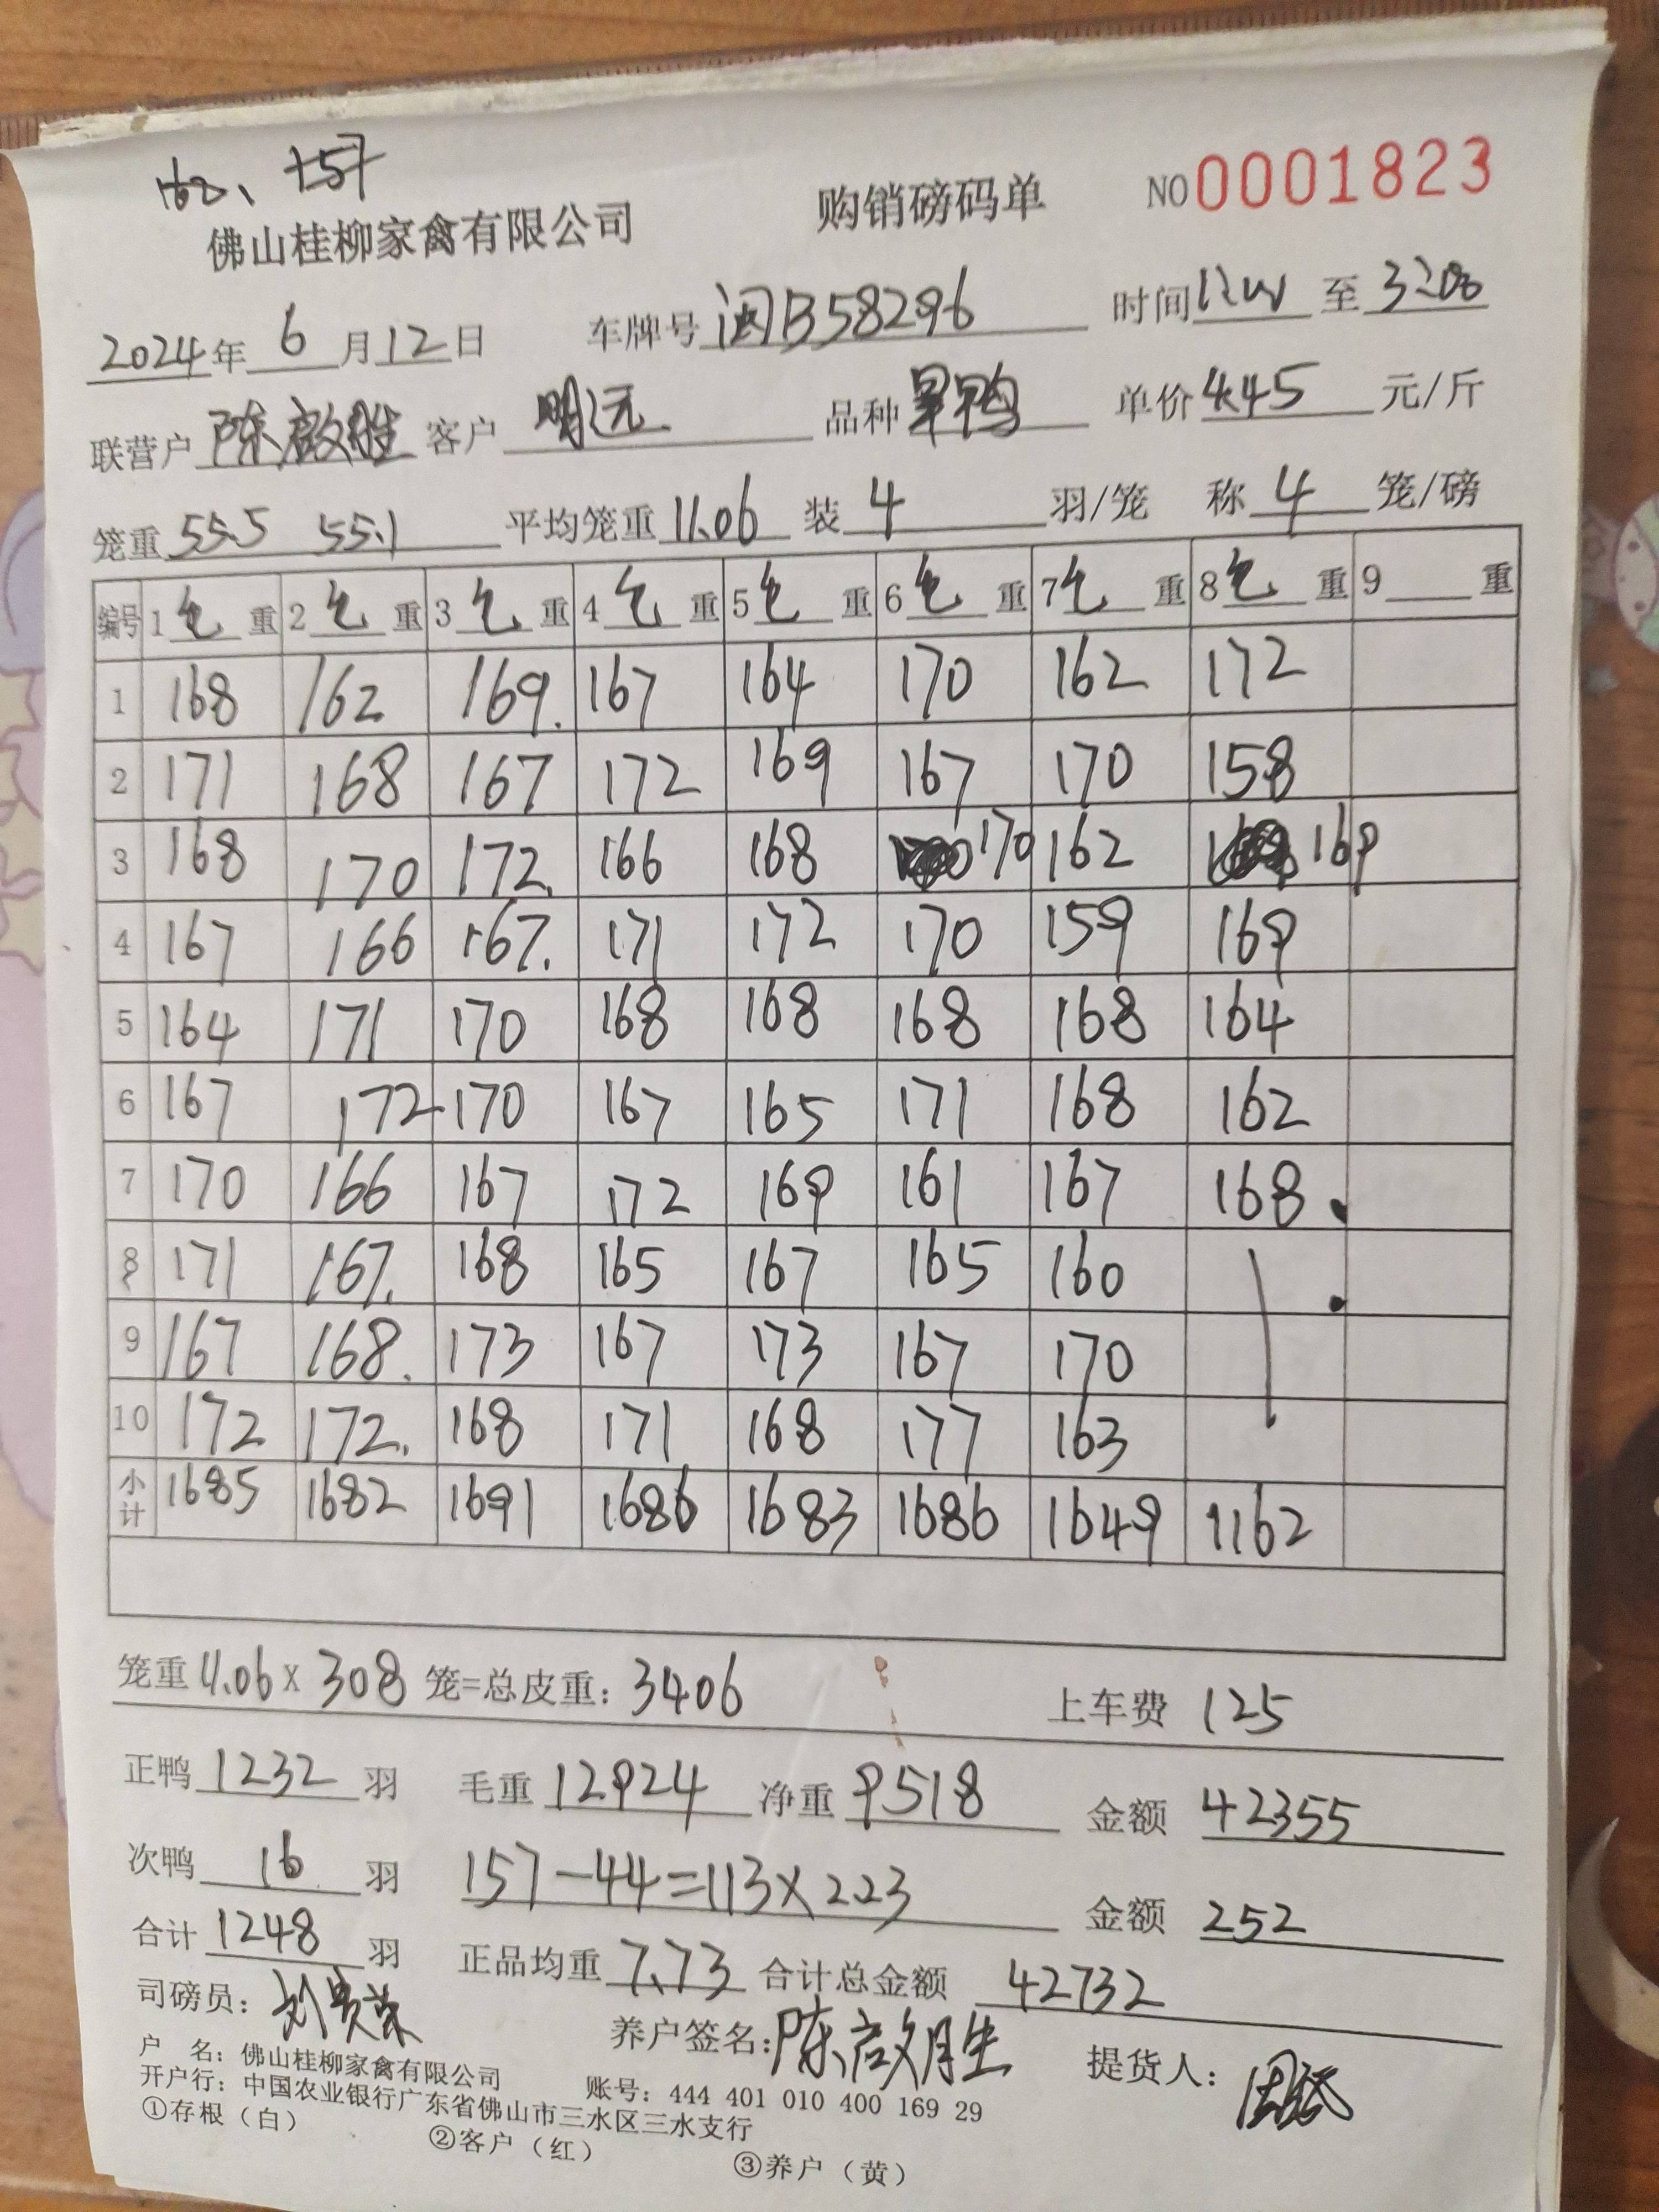 162、157
佛山桂柳家禽有限公司 购销磅码单 NO 0001823
2024年 6 月 12 日 车牌号 闽B58296 时间 至 3:00
联营户 陈啟胜 客户 明远 品种 旱鸭 单价 4.45 元/斤
笼重 55.5 55.1 平均笼重 11.06 装 4 羽/笼 称 4 笼/磅
编号 1 毛 重 2 毛 重 3 毛 重 4 毛 重 5 毛 重 6 毛 重 7 毛 重 8 毛 重 9 重
1 168 162 169. 167 164 170 162 172
2 171 168 167 172 169 167 170 158
3 168 170 172. 166 168 170 162 169
4 167 166 167. 171 172 170 159 169
5 164 171 170 168 168 168 168 164
6 167 172 170 167 165 171 168 162
7 170 166 167 172 169 161 167 168
8 171 167. 168 165 167 165 160
9 167 168. 173 167 173 167 170
10 172 172. 168 171 168 177 163
小计 1685 1682 1691 1686 1683 1686 1649 1162
笼重 11.06 x 308 笼=总皮重: 3406 上车费 125
正鸭 1232 羽 毛重 12924 净重 9518 金额 42355
次鸭 16 羽 157-44=113×2.23 金额 252
合计 1248 羽 正品均重 7.73 合计总金额 42732
司磅员: 刘贵荣 养户签名: 陈啟胜 提货人:
户 名: 佛山桂柳家禽有限公司
开户行: 中国农业银行广东省佛山市三水区三水支行 账号: 444 401 010 400 169 29
①存根（白） ②客户（红） ③养户（黄）